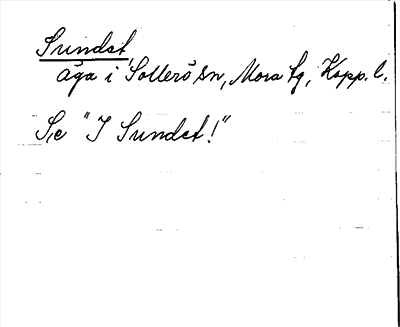 Sundet,
äga i Sollerö sn, Mora tg, Kopp. l.
Se "I Sundet!"